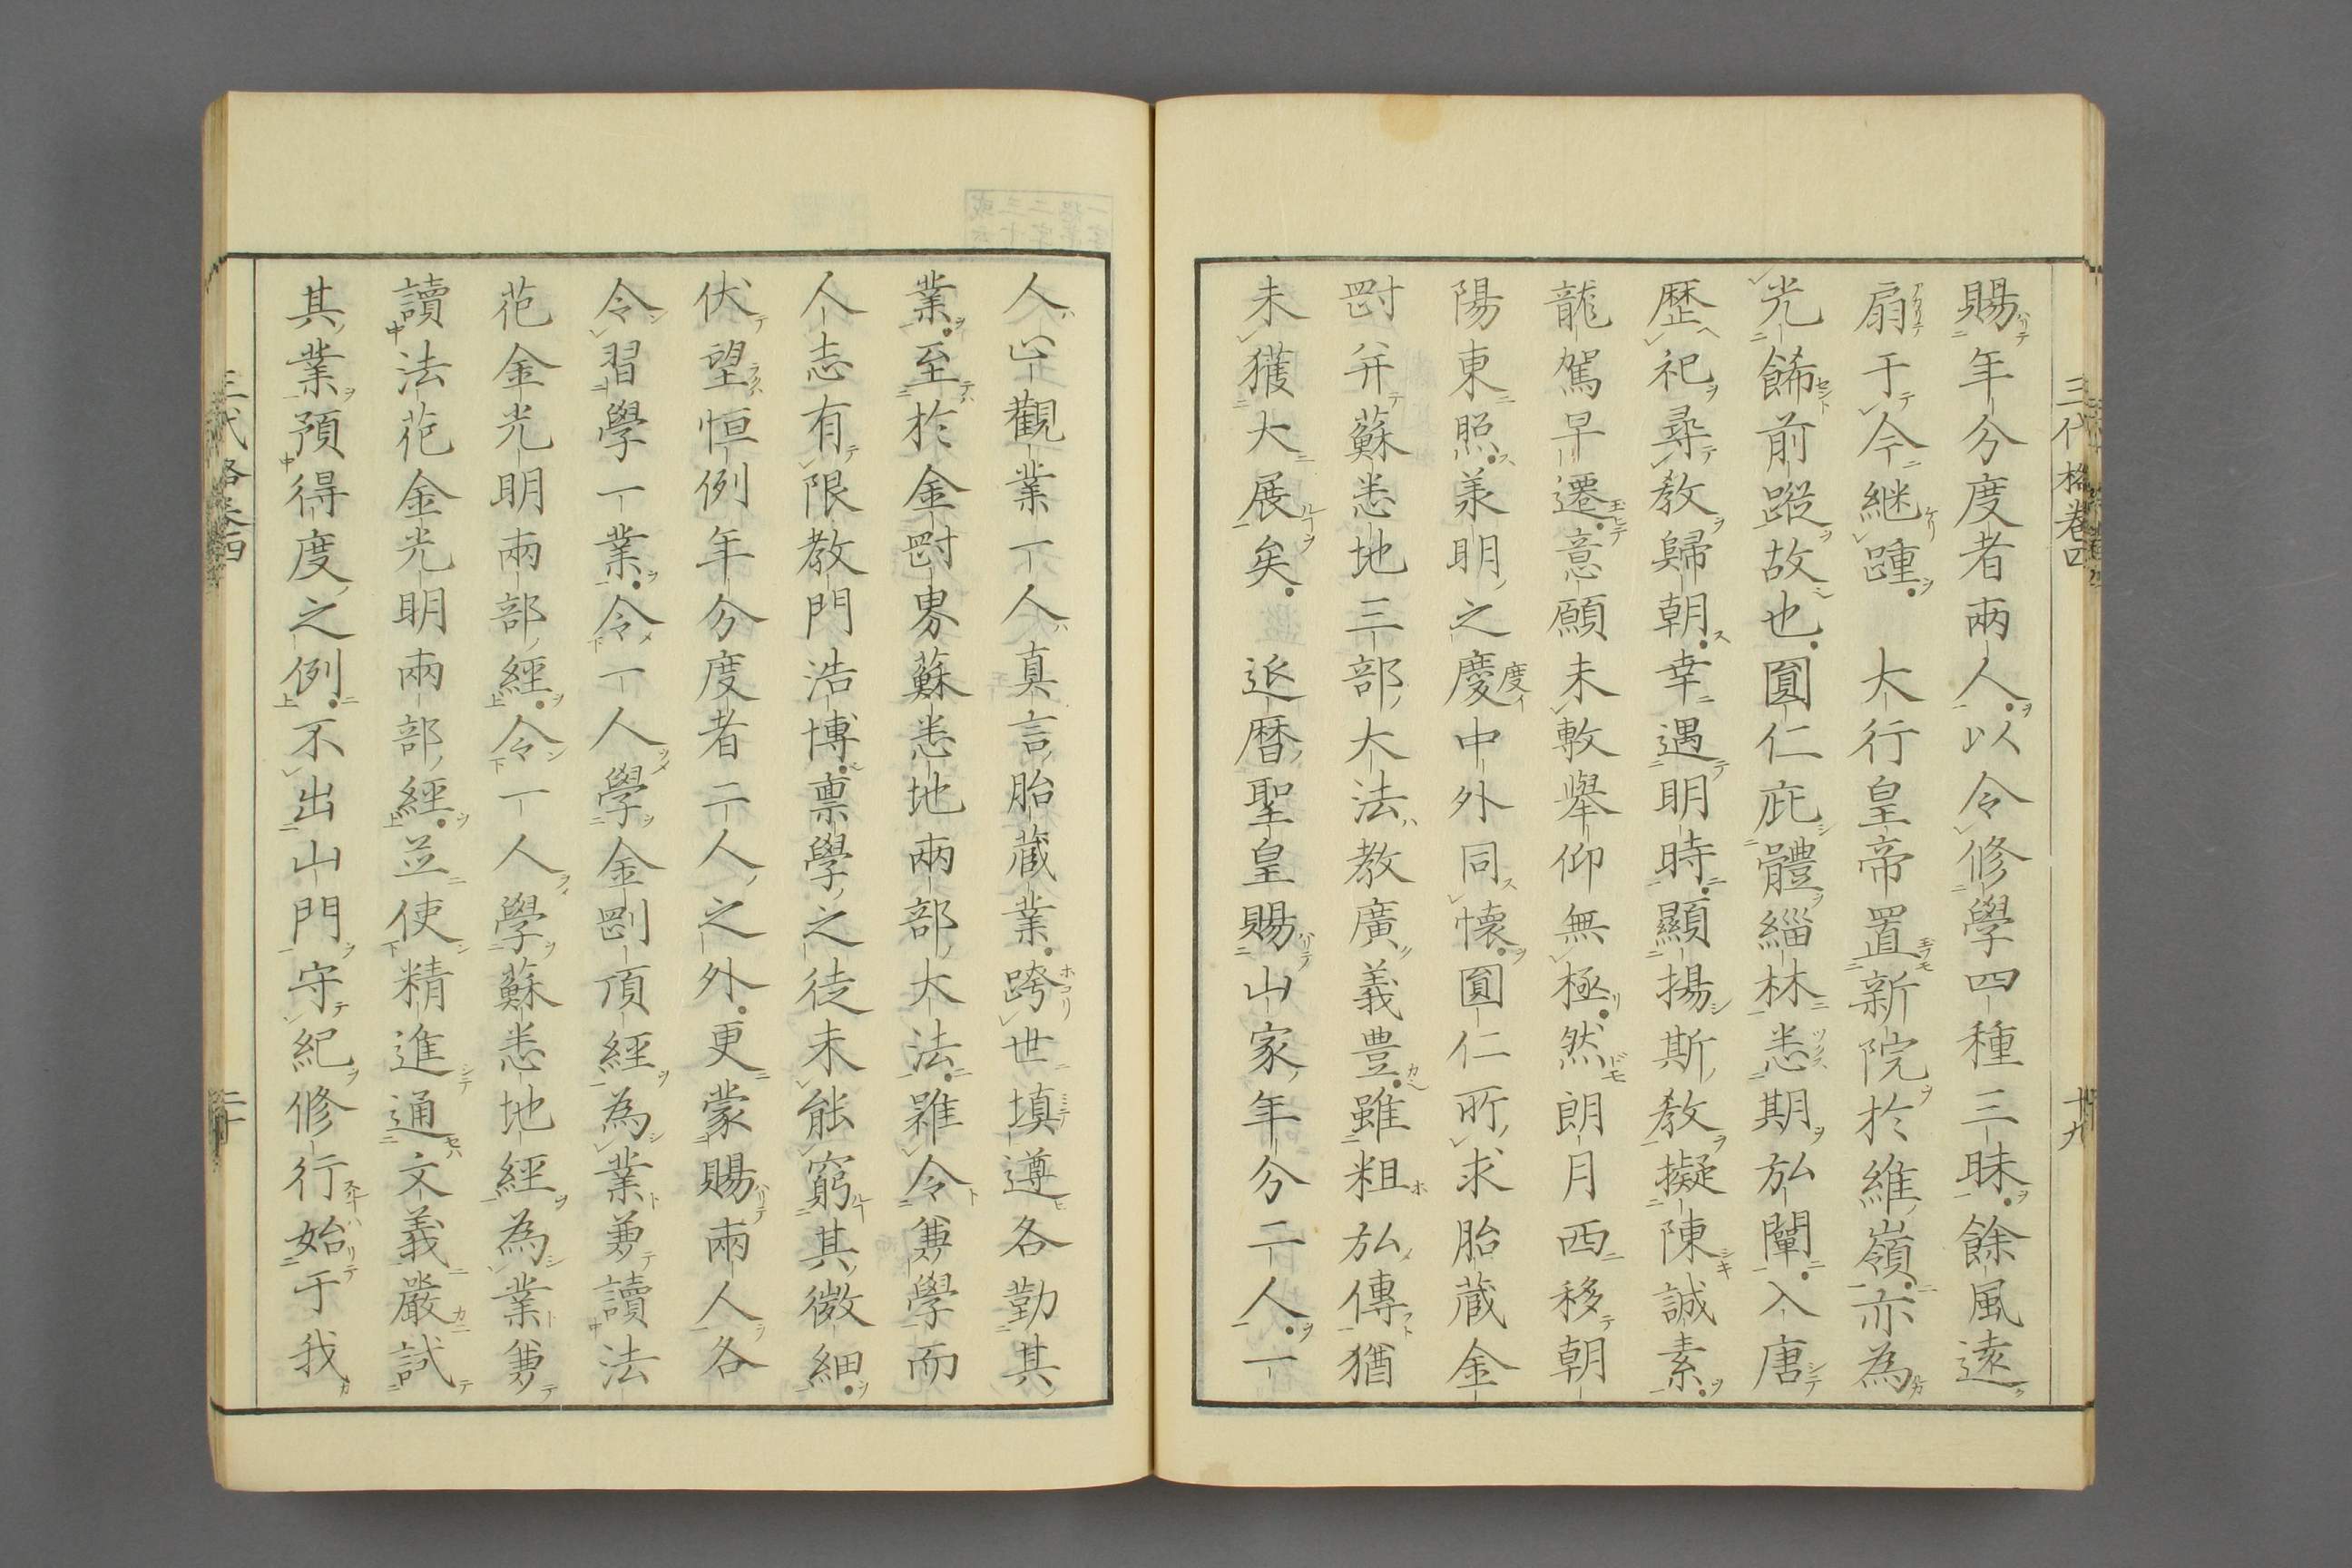 賜年分度者兩人以令修學四種三昧餘風遠
扇于今継踵　大行皇帝置新院於維嶺亦為
光餙前蹤故也圓仁庇體緇林悉期弘闡入唐
歷祀尋教歸朝幸遇明時顯揚斯教擬陳誠素
龍駕早遷意願未敷舉仰無極然朗月西移朝
陽東照羕明之慶中外同懷圓仁所求胎蔵金
罸并蘇悉地三部大法教廣義豊雖粗弘傳猶
未獲大展矣　近暦聖皇賜山家年分二人一
人止觀業一人真言胎蔵業跨世填遵各勤其
業至於金罸界蘇悉地兩部大法雖令兼學而
人志有限教門浩博稟學之徒未能窮其微細
伏望恒例年分度者二人之外更蒙賜兩人各
令習學一業令一人學金剛頂經為業兼讀法
花金光明兩部經令一人學蘇悉地經為業兼
讀法花金光明兩部經並使精進通文義嚴試
其業預得度之例不出山門守紀修行始于我
三代格卷四
十九
三代格卷四
二十